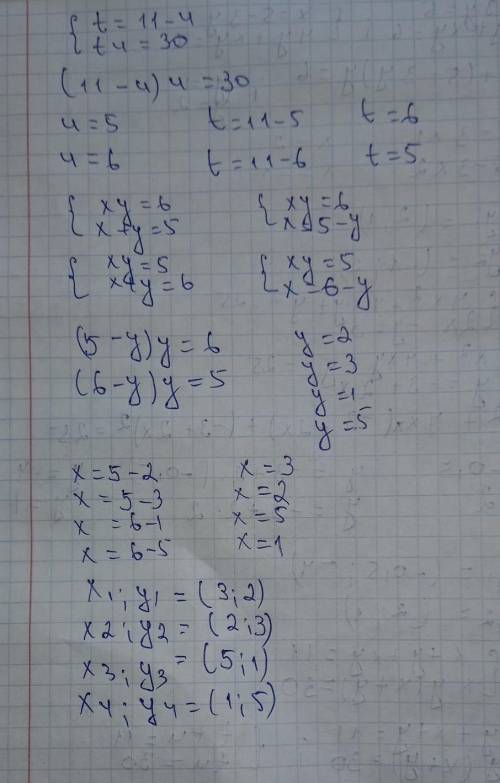 { t = 11 - u
{ tu = 30
(11 - u) u = 30
u = 5 t = 11 - 5 t = 6
u = 6 t = 11 - 6 t = 5
{ xy = 6 { xy = 6
{ x + y = 5 { x = 5 - y
{ xy = 5 { xy = 5
{ x + y = 6 { x = 6 - y
(5 - y) y = 6 y = 2
(6 - y) y = 5 y = 3
y = 1
y = 5
x = 5 - 2 x = 3
x = 5 - 3 x = 2
x = 6 - 1 x = 5
x = 6 - 5 x = 1
x1 ; y1 = (3 ; 2)
x2 ; y2 = (2 ; 3)
x3 ; y3 = (5 ; 1)
x4 ; y4 = (1 ; 5)